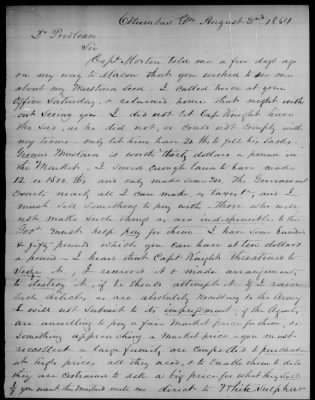 Columbus Ga August 2nd 1864
Dr Prileau
Sir
Capt Morton told me a few days ago
on my way to Macon that you wished to see me
about my Mustard Seed. I called twice at your
Office Saturday, & returned home that night with
out seeing you I did not let Capt Knight have
the Seed, as he did not, or could not comply with
my terms - only let him have 20 lbs to fill his Sacks.
Ground Mustard is worth thirty dollars a pound in
the Market - I sowed enough land to have made
12 or 1500 lbs and only made some 300, the Government
exacts nearly all I can make, in taxes & and I
must sell something to pay with Those who will
not make such things as are indispensible to the
Govt must help pay for them I have some hundred
& fifty pounds which you can have at ten dollars
a pound - I hear that Capt Knight threatened to
seize it, I removed it & made arrangements
to destroy it, if he should attempt it If I raise
such articles as are absolutely necessary to the Army
I will not submit to its impressment, if the Agents
are unwilling to pay a fair Market price for them, or
something approaching a Market price - you must
recollect a large family are compelled to purchase
at high prices, all they need, & to enable them to do it
they are constrained to ask a big price for what they sell
If you want the Mustard write me direct to White Sulpher